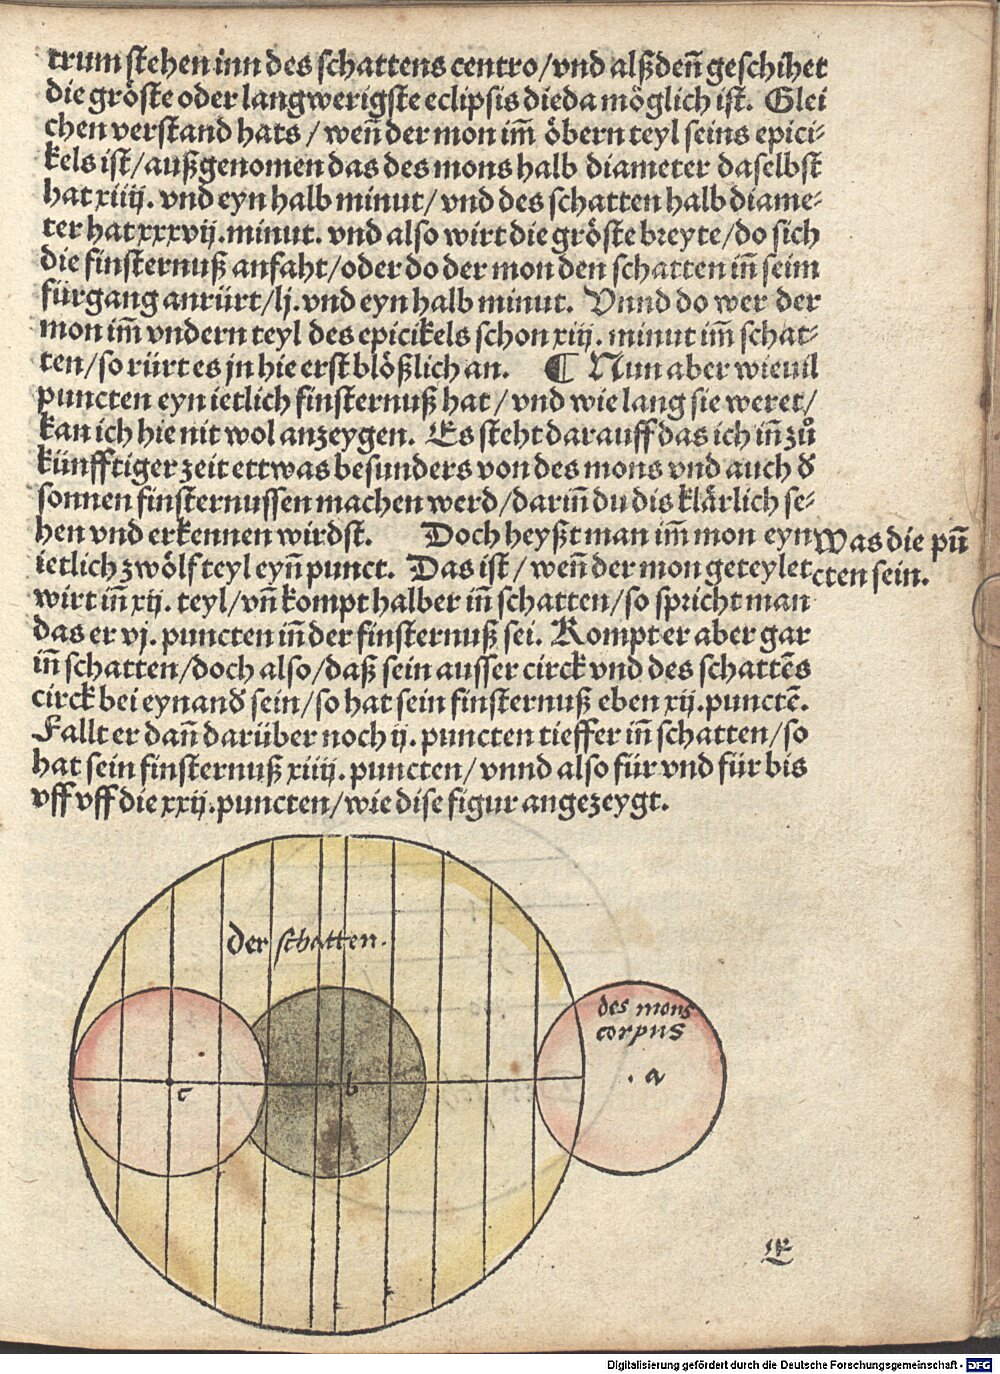 trum stehen inn des schattens centro/vnd alßden̄ geschihet
die gröste oder langwerigste eclipsis die da möglich ist. Glei
chen verstand hats / wen̄ der mon im̄ öbern teyl seins epici-
kels ist/außgenomen das des mons halb diameter daselbst
hat xiiij. vnd eyn halb minut/ vnd des schatten halb diame-
ter hat xxxvij.minut. vnd also wirt die gröste breyte/do sich
die finsternuß anfaht/oder do der mon den schatten in̄ seim
fürgang anrürt/lj.vnd eyn halb minut. Vnnd do wer der
mon im̄ vndern teyl des epicikels schon xiij. minut im̄ schat-
ten/so rürt es jn hie erst blößlich an. ¶ Nun aber wieuil
puncten eyn ietlich finsternuß hat / vnd wie lang sie weret/
kan ich hie nit wol anzeygen. Es steht darauff das ich in̄ zů
künfftiger zeit ettwas besunders von des mons vnd auch d̕
sonnen finsternussen machen werd/darin̄ du dis klärlich se-
hen vnd erkennen wirdst. Doch heyßt man im̄ mon eyn
ietlich zwölfteyl eyn̄ punct. Das ist / wen̄ der mon geteylet
wirt in̄ xij. teyl/vn̄ kompt halber in̄ schatten/so spricht man
das er vj. puncten in̄ der finsternuß sei. Kompt er aber gar
in̄ schatten/doch also/daß sein ausser circk vnd des schattēs
circk bei eynand̕ sein/so hat sein finsternuß eben xij.punctē.
Fallt er dan̄ darüber noch ij. puncten tieffer in̄ schatten/so
hat sein finsternuß xiiij. puncten/ vnnd also für vnd für bis
vff vff die xxij.puncten/wie dise figur angezeygt.
Was die pū
cten sein.
der schatten.
des mons
corpus
a
b
c
Digitalisierung gefördert durch die Deutsche Forschungsgemeinschaft - DFG